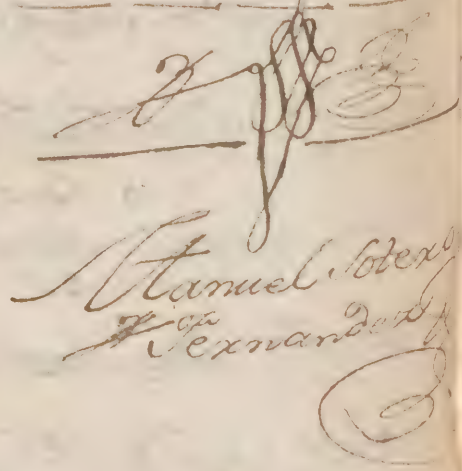 Manuel Sotero
Fernandez